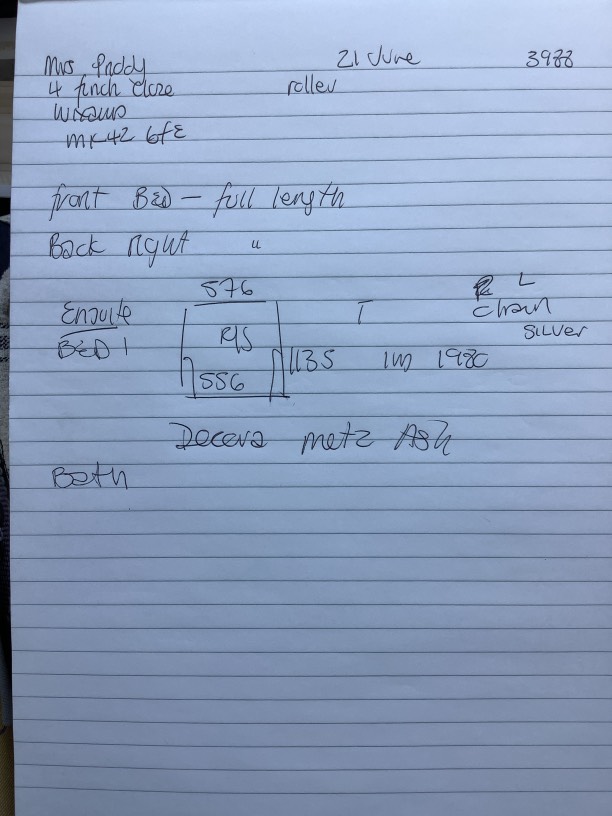 Mrs Paddy 21 June 3988
4 finch close roller
Wixams
MK42 6fE
front BED - full length
Back right "
576
Ensuite T L
BED 1 R/S Chain
SILVER
556 1135 1m 1980
Decora metz Ash
Both